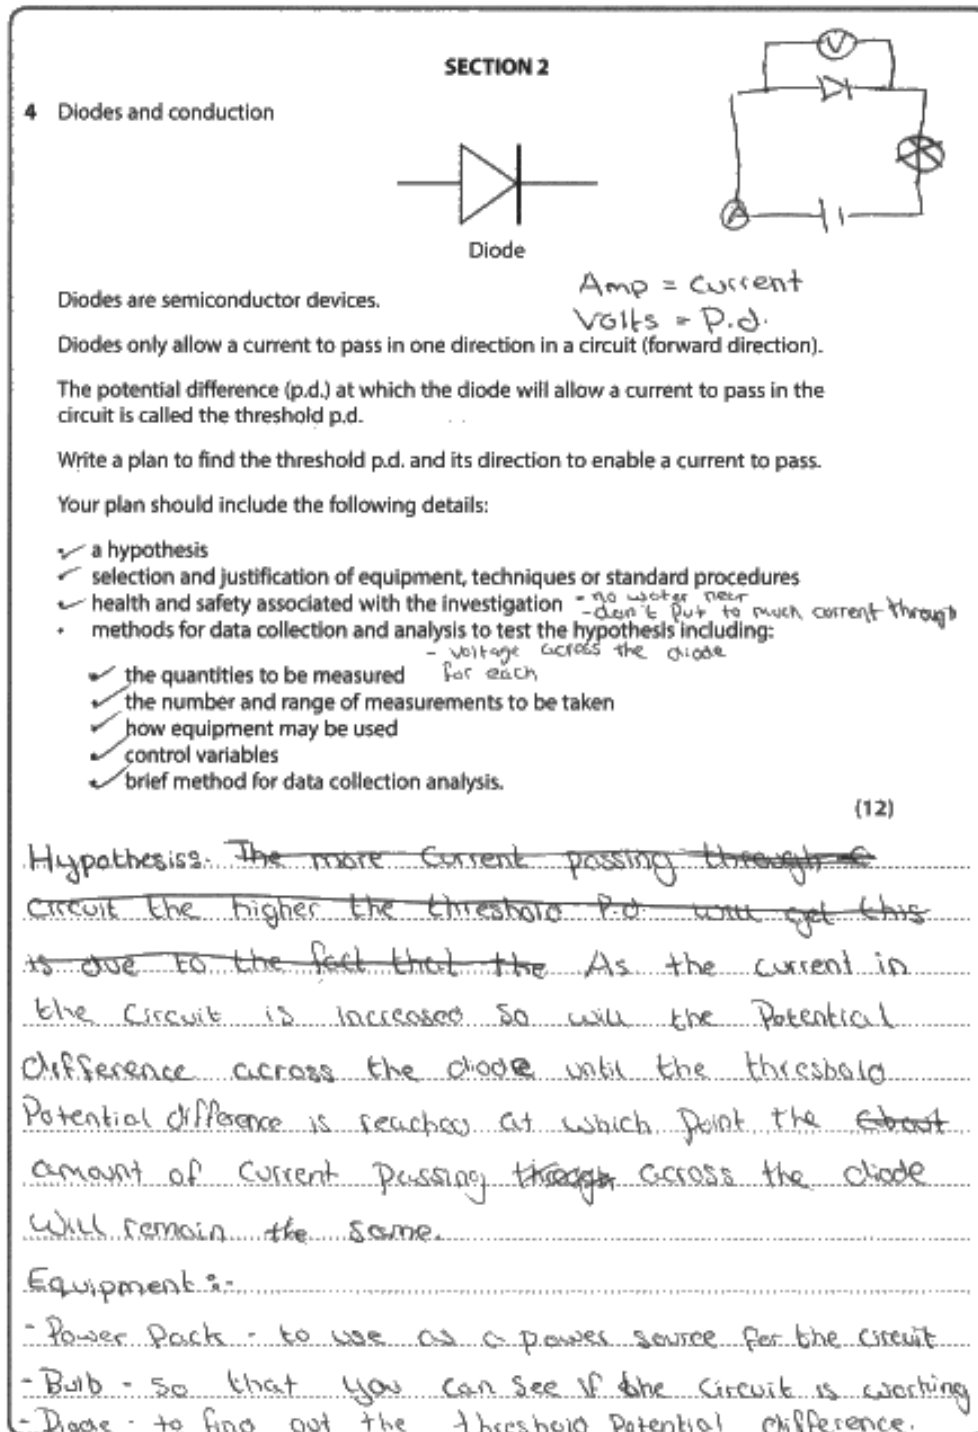 SECTION 2
V
4 Diodes and conduction
A
Diode
Amp = Current
Diodes are semiconductor devices.
Volts = P.d.
Diodes only allow a current to pass in one direction in a circuit (forward direction).
The potential difference (p.d.) at which the diode will allow a current to pass in the
circuit is called the threshold p.d.
Write a plan to find the threshold p.d. and its direction to enable a current to pass.
Your plan should include the following details:
a hypothesis
selection and justification of equipment, techniques or standard procedures
health and safety associated with the investigation - no water near
- don't put to much current through
• methods for data collection and analysis to test the hypothesis including:
- voltage across the diode
the quantities to be measured for each
the number and range of measurements to be taken
how equipment may be used
control variables
brief method for data collection analysis.
(12)
Hypothesiss. The more current passing through
circuit the higher the threshold P.d. will get this
is due to the fact that the As the current in
the circuit is increased so will the Potential
difference across the diode until the threshold
Potential difference is reached at which point the
amount of current passing through across the diode
will remain the same.
Equipment:-
- Power Pack - to use as a power source for the circuit
- Bulb - so that you can see if the circuit is working
- Diode - to find out the threshold Potential difference.